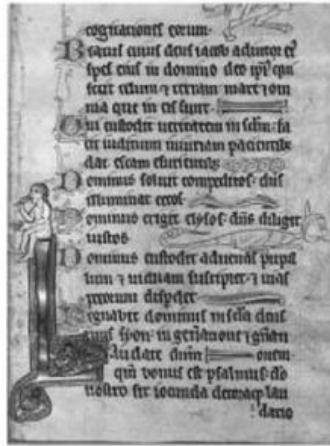 cogitationes eorum.
Beatus cuius deus iacob adiutor ei⁹
spes eius in domino deo ipi⁹ qui
fecit celum ⁊ terram mare ⁊ om
nia que in eis sunt.
Qui custodit ueritatem in sclm̄ fa
cit iudicium iniuriam pacientib;
dat escam esurientib;
Dominus soluit compeditos. dn̄s
illuminat cecos.
Dominus erigit elysos. dn̄s diligit
iustos
Dominus custodit aduenas pupil
lum ⁊ uiduam suscipiet ⁊ uias
disperdet
Regnabit dominus in scl̄a deus
tuus syon. in generatione ⁊ gn̄ati
Laudate dn̄m onem.
qm̄ bonus est psalmus. do
nostro sit iocunda decoraq; lau
datio